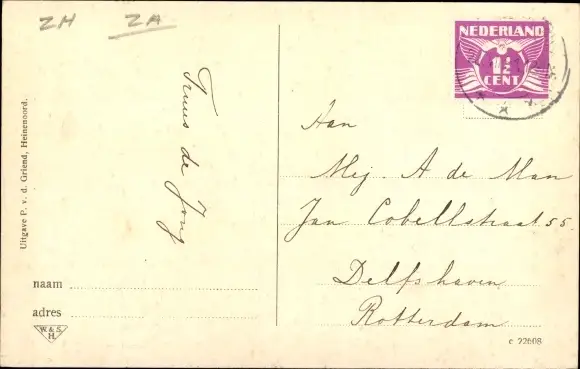 ZH ZA
NEDERLAND
1½
CENT
Truus de Jong
Aan
Mej. A de Man
Jan Cobellstraat 55.
Delfshaven
Rotterdam
Uitgave P. v. d. Griend, Heinenoord.
naam
adres
W. & S.
H.
c 22608